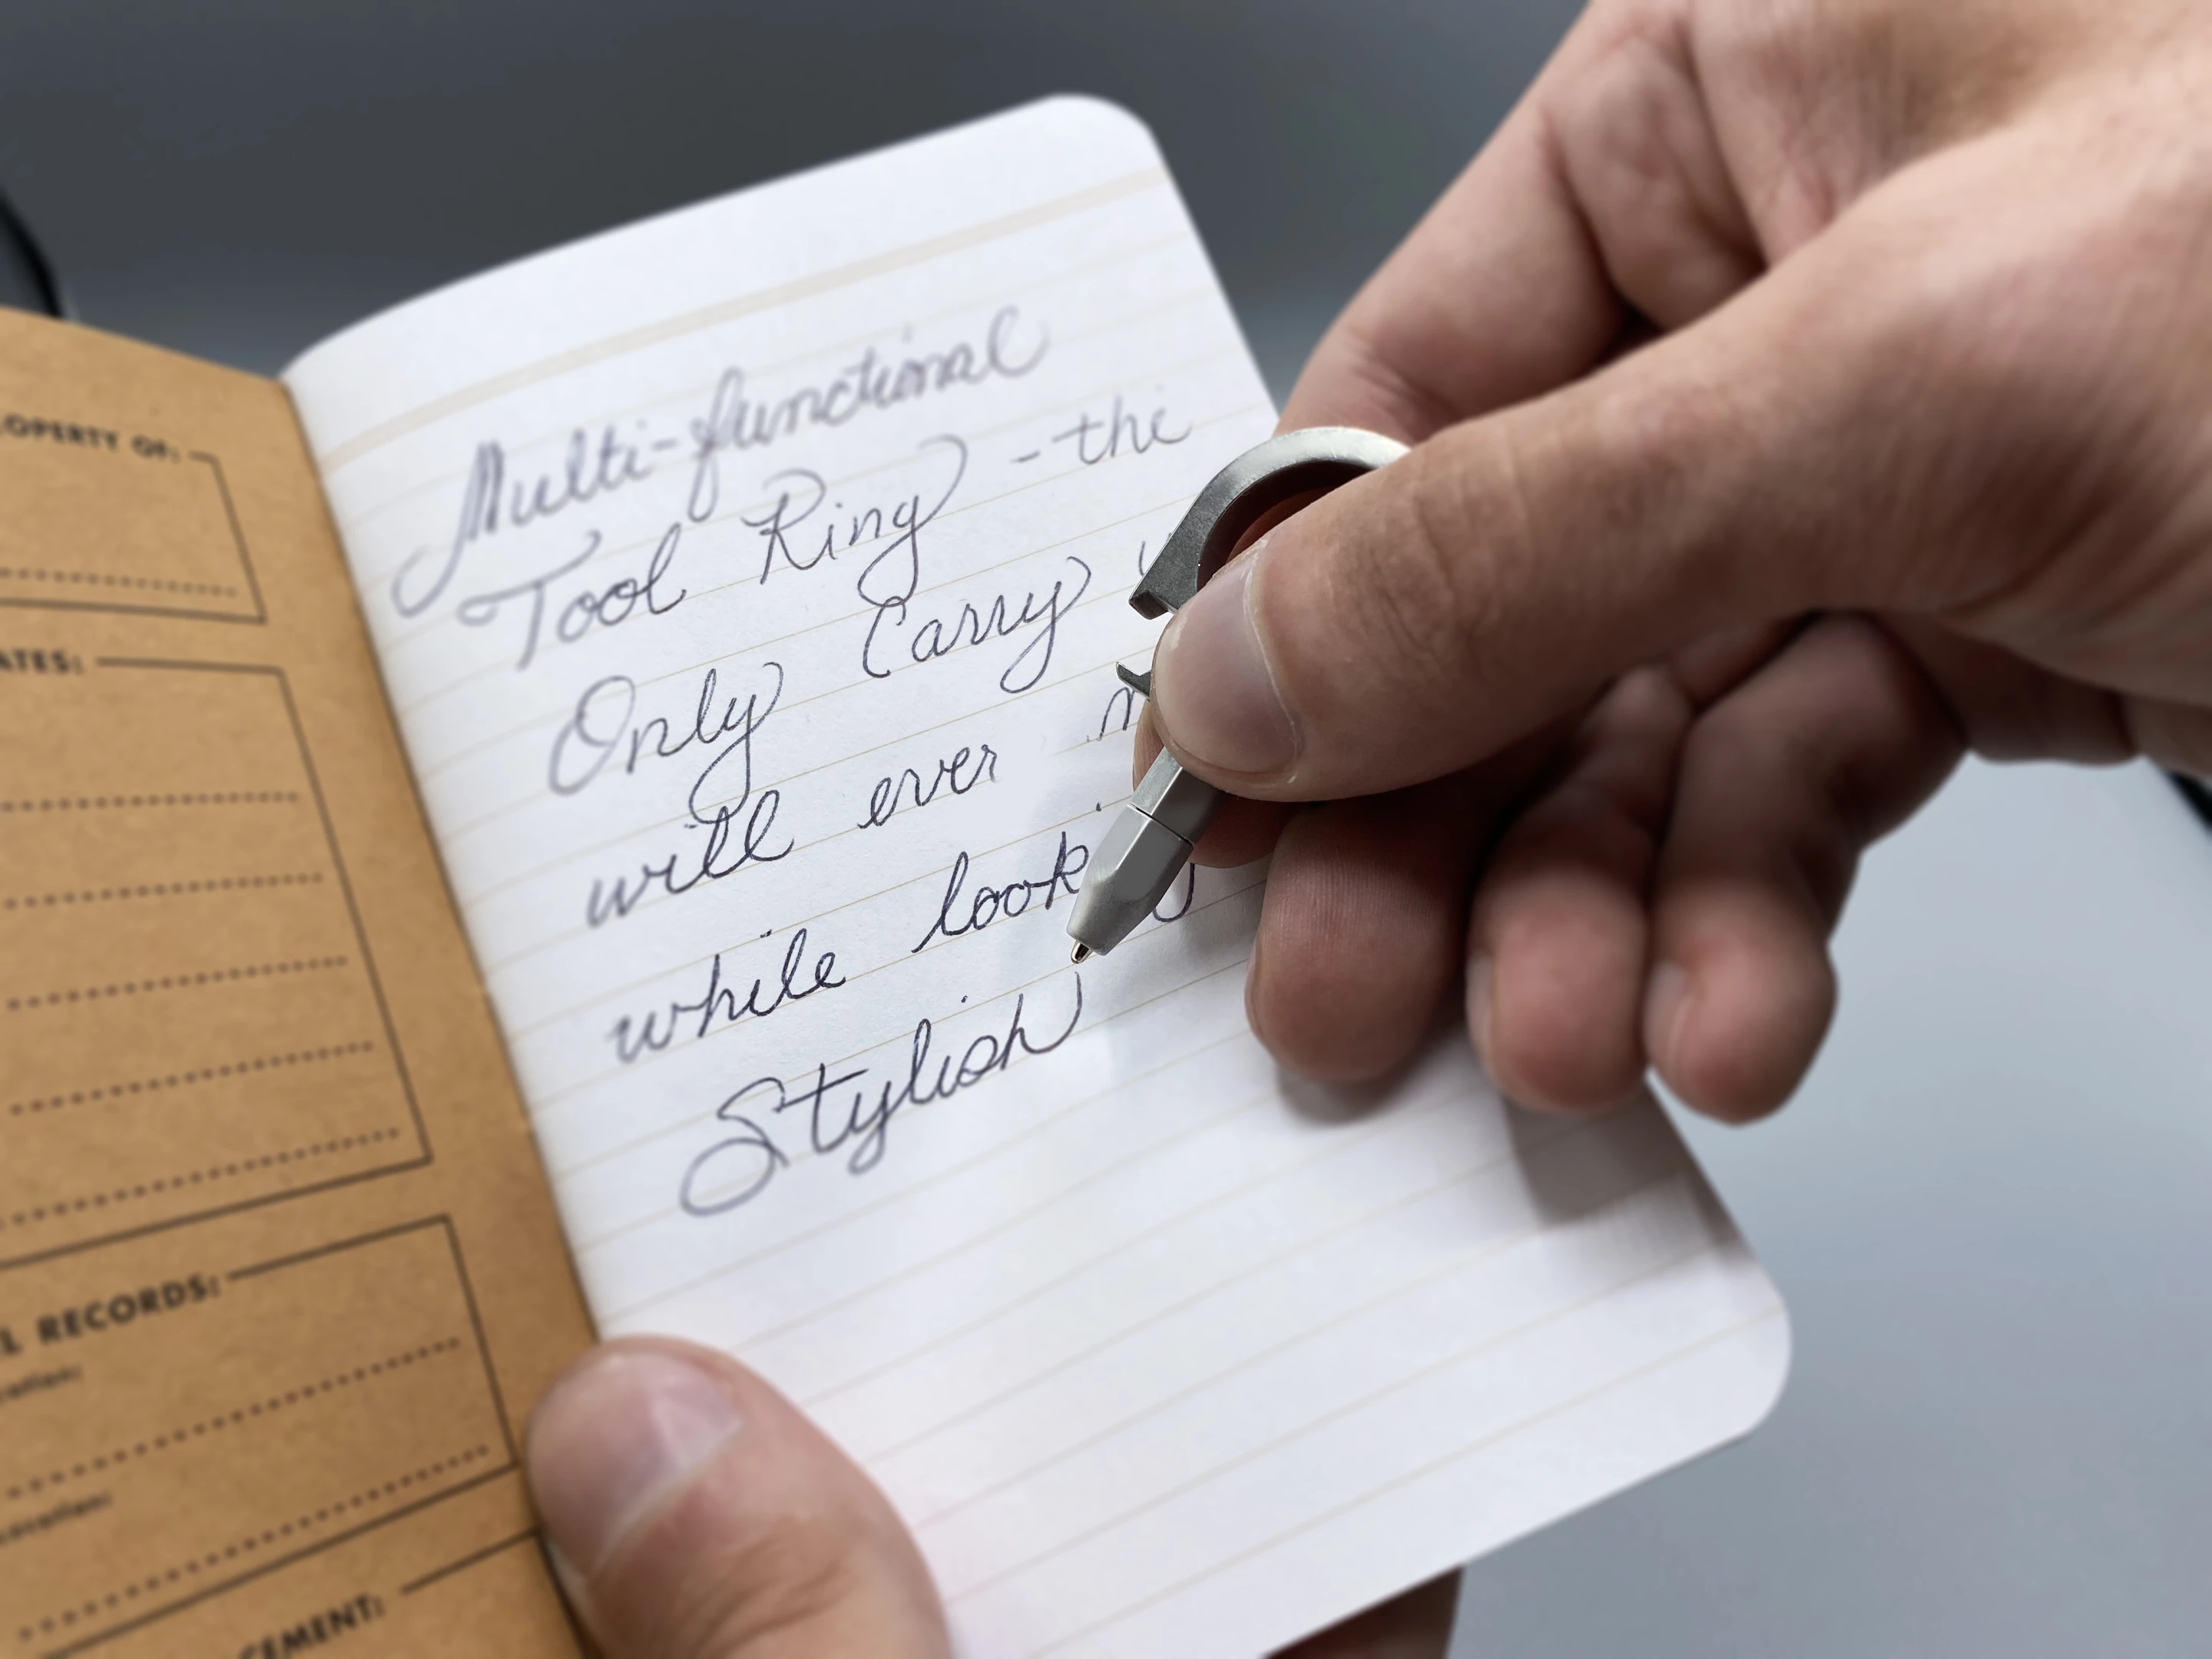 OPERTY OF:
ATES:
L RECORDS:
CEMENT:
Multi-functional
Tool Ring - the
Only Carry
will ever
while look
Stylish